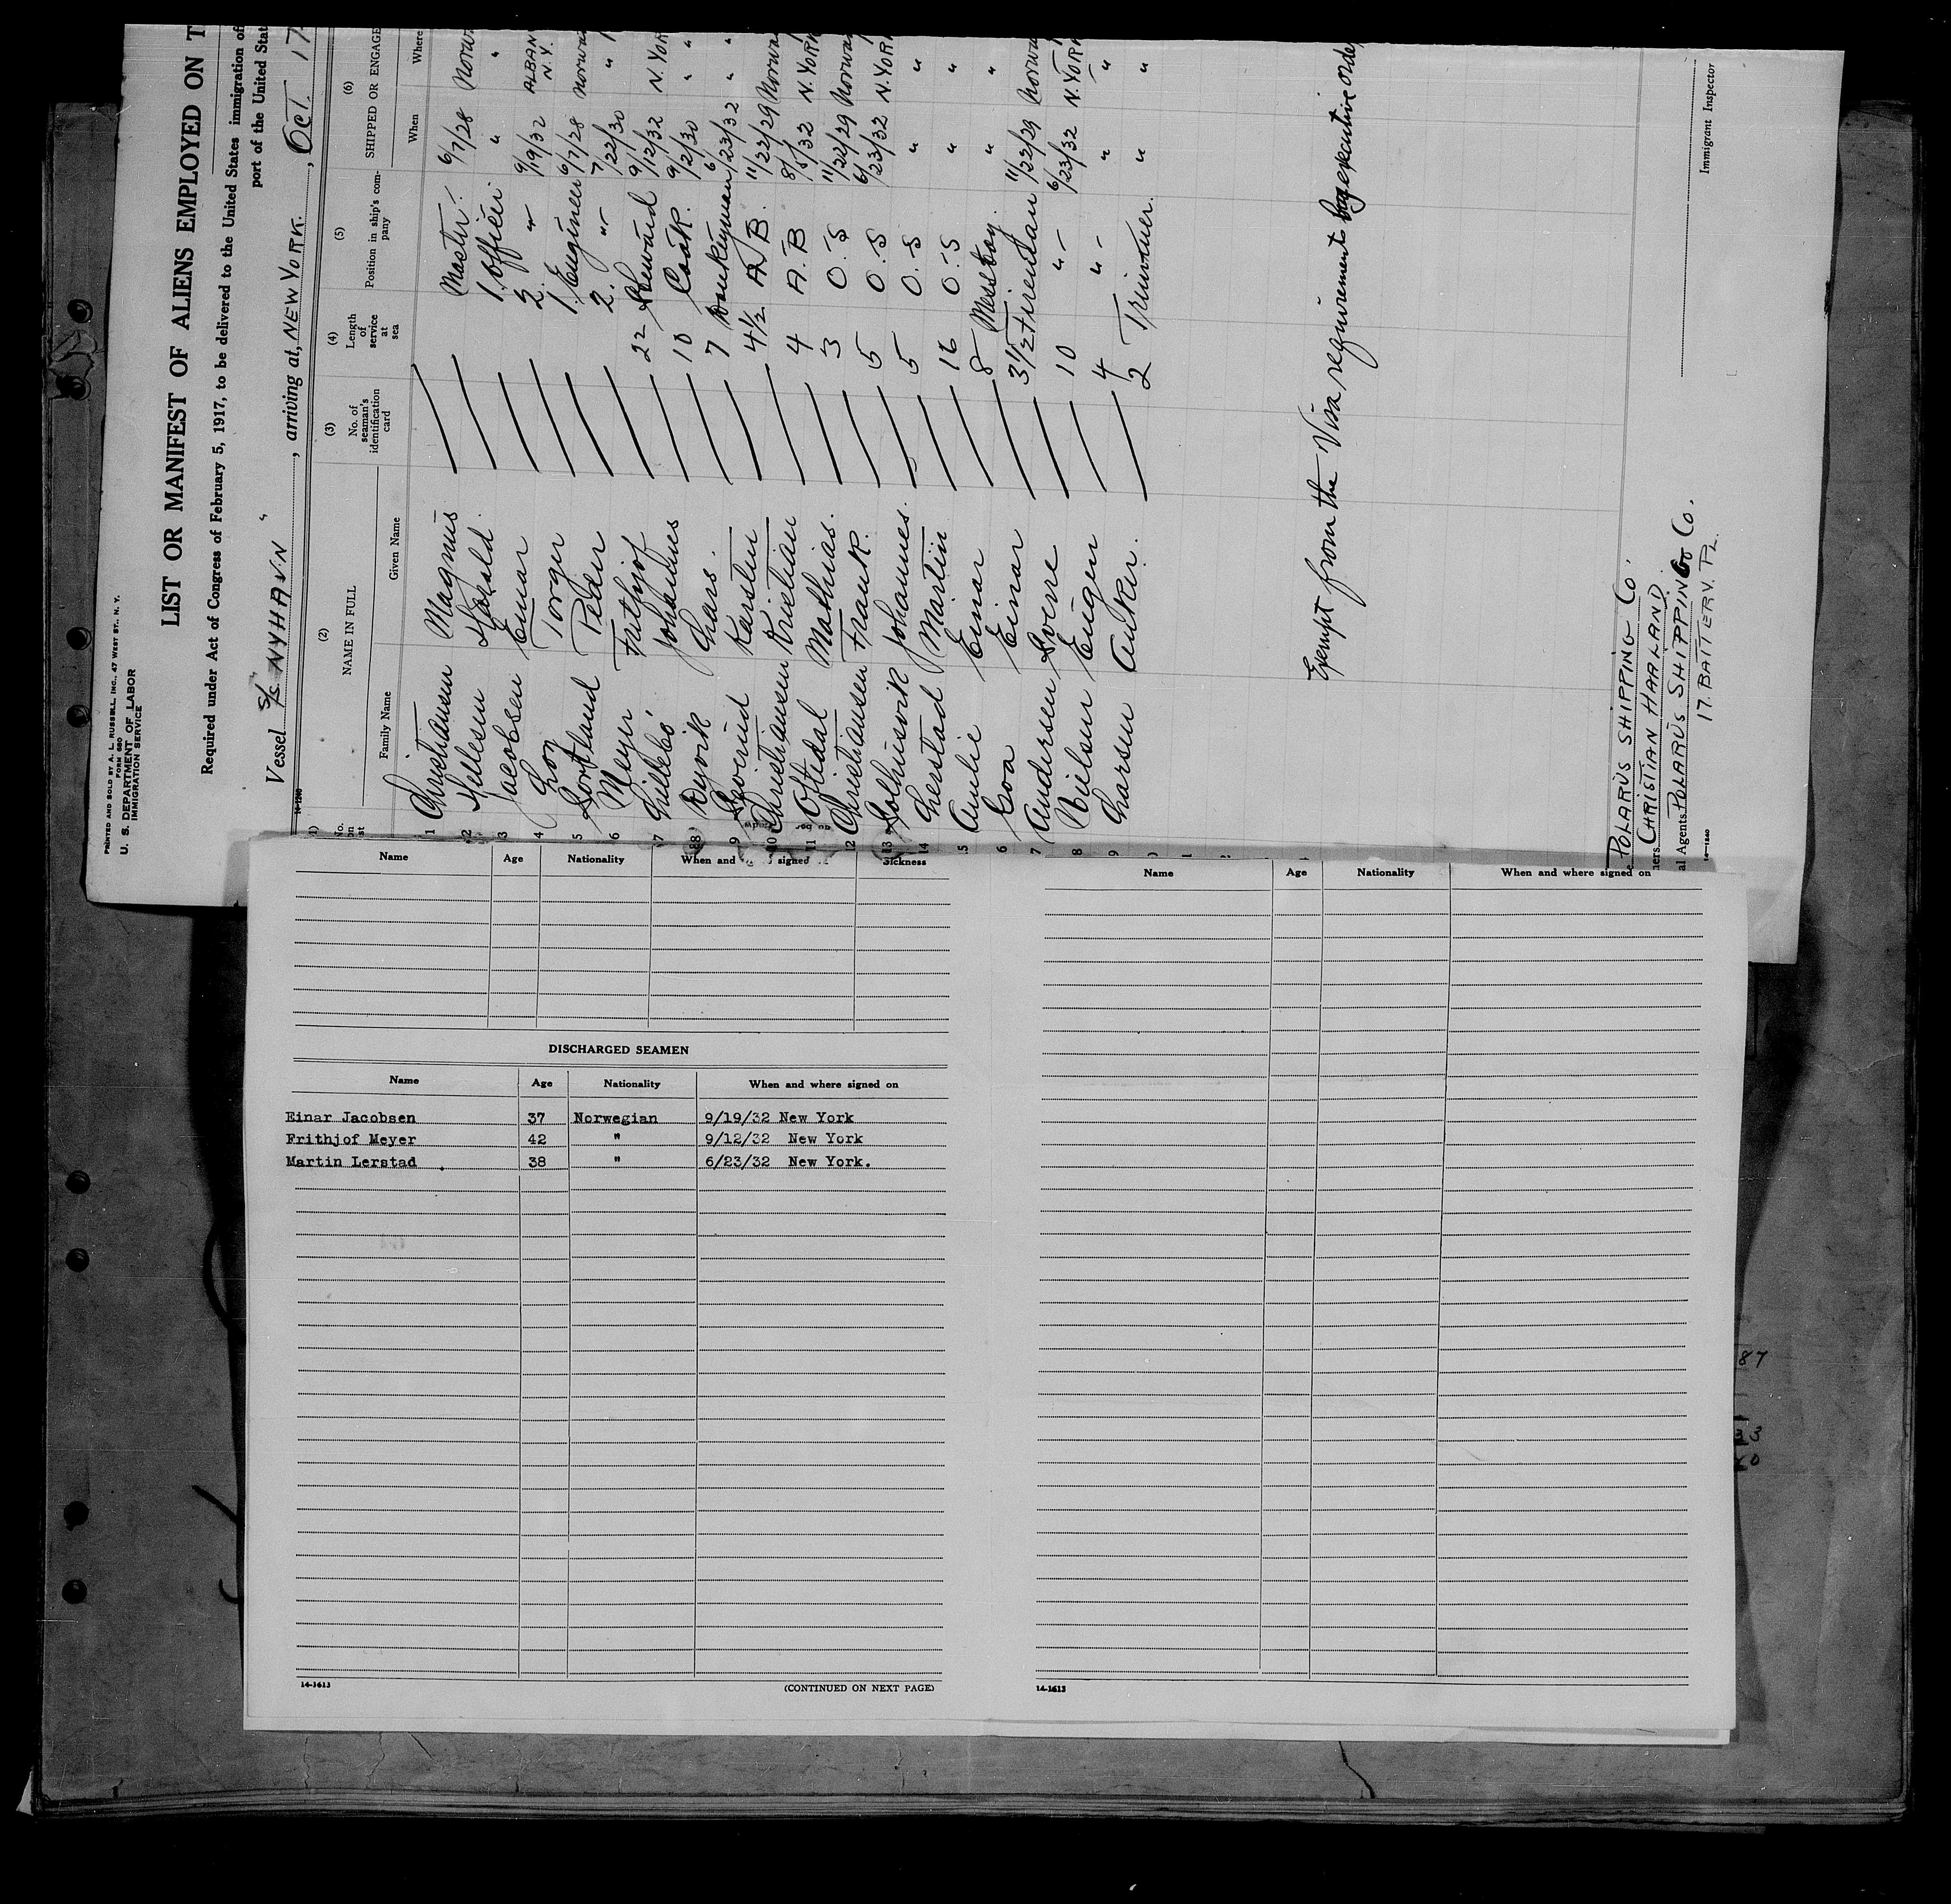 PRINTED AND SOLD BY A. L. RUSSELL, INC., 47 WEST ST., N. Y.
FORM 680
U. S. DEPARTMENT OF LABOR
IMMIGRATION SERVICE
LIST OR MANIFEST OF ALIENS EMPLOYED ON T
Required under Act of Congress of February 5, 1917, to be delivered to the United States immigration of
port of the United Stat
Vessel S/S NYHAVN , arriving at, NEW YORK. , Oct. 17
14-1240
(2) (3) (4) (5) (6)
NAME IN FULL No. of seaman's identification card Length of service at sea Position in ship's company SHIPPED OR ENGAGE
Family Name Given Name When Where
1 Christiansen Magnus Master. 6/7/28 Norwa
2 Harald 1. Officer " "
3 Jacobsen Einar 2. " 9/19/32 ALBAN N.Y.
4 Torger 1. Engineer 6/7/28 Norwa
5 Sortland Peder 2. " 7/22/30 "
6 Meyer Frithjof 22 Steward 9/12/32 N. YOR
7 Johannes 10 Cook. 9/2/30 "
8 Lars. 7 Donkeyman 6/23/32 "
9 Karsten 4½ A/B. 11/22/29 Norwa
10 Christiansen Kristian 4 A.B 8/5/32 N. YOR
11 Oftedal Mathias. 3 O.S 11/22/29 Norwa
12 Christiansen Frank. 5 O.S 6/23/32 N. YOR
13 Solhusvik Johannes. 5 O.S " "
14 Lerstad Martin 16 O.S " "
5 Aulie Einar 8 Messboy. " "
6 Einar 3½ Fireman 11/22/29 Norwa
7 Andersen Sverre 10 " 6/23/32 N. YOR
8 Nielsen Eugen 4 " " "
9 Larsen Anker. 2 Trimmer. " "
Exempt from the Visa requirement by executive orde
POLARUS SHIPPING Co.
ners CHRISTIAN HAALAND.
al Agents. POLARUS SHIPPING Co.
17. BATTERY. PL.
14-1240
Immigrant Inspector
Name Age Nationality When and signed Sickness
DISCHARGED SEAMEN
Name Age Nationality When and where signed on
Einar Jacobsen 37 Norwegian 9/19/32 New York
Frithjof Meyer 42 " 9/12/32 New York
Martin Lerstad . 38 " 6/23/32 New York.
14-1613 (CONTINUED ON NEXT PAGE)
Name Age Nationality When and where signed on
14-1613
87